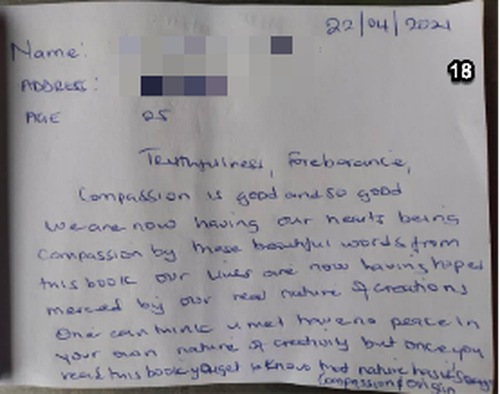 22/04/2021
Name:
18
ADDRESS:
AGE 25
Truthfulness, Foreborance,
Compassion is good and so good
we are now having our hearts being
compassion by these beautiful words from
this book our lives are now having hoped
merced by our real nature of creations
One can think u met have no peace in
your own nature of creativity but once you
read this book you get to know that nature has
compassion origin